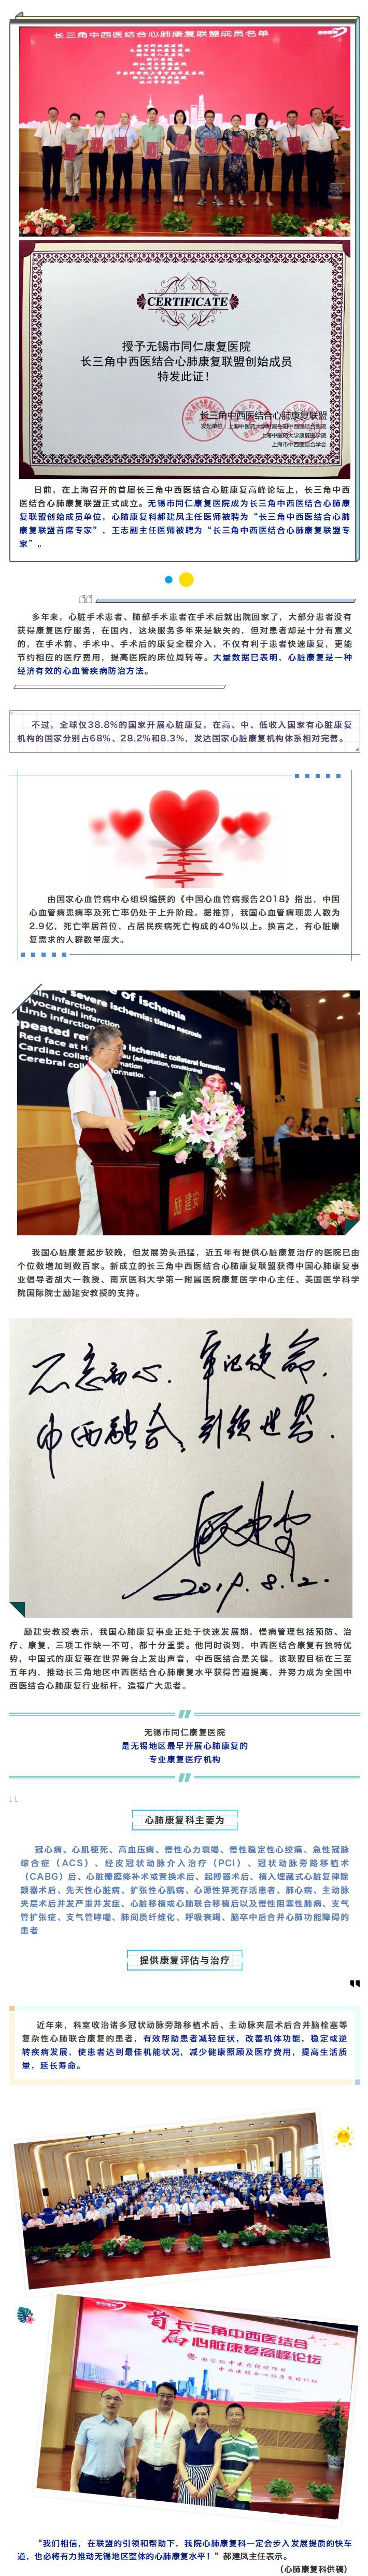 长三角中西医结合心肺康复联盟成员名单
CERTIFICATE
授予无锡市同仁康复医院
长三角中西医结合心肺康复联盟创始成员
特发此证！
长三角中西医结合心肺康复联盟
上海中医药大学康复医学院
上海市中西医结合学会
日前，在上海召开的首届长三角中西医结合心脏康复高峰论坛上，长三角中西
医结合心肺康复联盟正式成立。无锡市同仁康复医院成为长三角中西医结合心肺康
复联盟创始成员单位，心肺康复科郝建凤主任医师被聘为“长三角中西医结合心肺
康复联盟首席专家”，王志副主任医师被聘为“长三角中西医结合心肺康复联盟专
家”。
多年来，心脏手术患者、肺部手术患者在手术后就出院回家了，大部分患者没有
获得康复医疗服务，在国内，这块服务多年来是缺失的，但对患者却是十分有意义
的，在手术前、手术中、手术后的康复全程介入，不仅有利于患者快速康复，更能
节约相应的医疗费用，提高医院的床位周转等。大量数据已表明，心脏康复是一种
经济有效的心血管疾病防治方法。
不过，全球仅38.8%的国家开展心脏康复，在高、中、低收入国家有心脏康复
机构的国家分别占68%、28.2%和8.3%，发达国家心脏康复机构体系相对完善。
由国家心血管病中心组织编撰的《中国心血管病报告2018》指出，中国
心血管病患病率及死亡率仍处于上升阶段。据推算，我国心血管病现患人数为
2.9亿，死亡率居首位，占居民疾病死亡构成的40%以上。换言之，有心脏康
复需求的人群数量庞大。
severe ischemia: tissue necrosis
Limb Infarction
励建安
我国心脏康复起步较晚，但发展势头迅猛，近五年有提供心脏康复治疗的医院已由
个位数增加到数百家。新成立的长三角中西医结合心肺康复联盟获得中国心肺康复事
业倡导者胡大一教授、南京医科大学第一附属医院康复医学中心主任、美国医学科学
院国际院士励建安教授的支持。
不忘初心．牢记使命．
中西融合，引领世界．
励建安
2019.8.12.
励建安教授表示，我国心肺康复事业正处于快速发展期，慢病管理包括预防、治
疗、康复，三项工作缺一不可，都十分重要。他同时谈到，中西医结合康复有独特优
势，中国式的康复要在世界舞台上发出声音，中西医结合是关键。该联盟目标在三至
五年内，推动长三角地区中西医结合心肺康复水平获得普遍提高，并努力成为全国中
西医结合心肺康复行业标杆，造福广大患者。
无锡市同仁康复医院
是无锡地区最早开展心肺康复的
专业康复医疗机构
心肺康复科主要为
冠心病、心肌梗死、高血压病、慢性心力衰竭、慢性稳定性心绞痛、急性冠脉
综合症（ACS）、经皮冠状动脉介入治疗（PCI）、冠状动脉旁路移植术
（CABG）后、心脏瓣膜修补术或置换术后、起搏器术后、植入埋藏式心脏复律除
颤器术后、先天性心脏病、扩张性心肌病、心源性猝死存活患者、肺心病、主动脉
夹层术后并发严重并发症、心脏移植或心肺联合移植后以及慢性阻塞性肺病、支气
管扩张症、支气管哮喘、肺间质纤维化、呼吸衰竭、脑卒中后合并心肺功能障碍的
患者
提供康复评估与治疗
近年来，科室收治诸多冠状动脉旁路移植术后、主动脉夹层术后合并脑栓塞等
复杂性心肺联合康复的患者，有效帮助患者减轻症状，改善机体功能，稳定或逆
转疾病发展，使患者达到最佳机能状况，减少健康照顾及医疗费用，提高生活质
量，延长寿命。
首届长三角中西医结合
心脏康复高峰论坛
“我们相信，在联盟的引领和帮助下，我院心肺康复科一定会步入发展提质的快车
道，也必将有力推动无锡地区整体的心肺康复水平！”郝建凤主任表示。
（心肺康复科供稿）